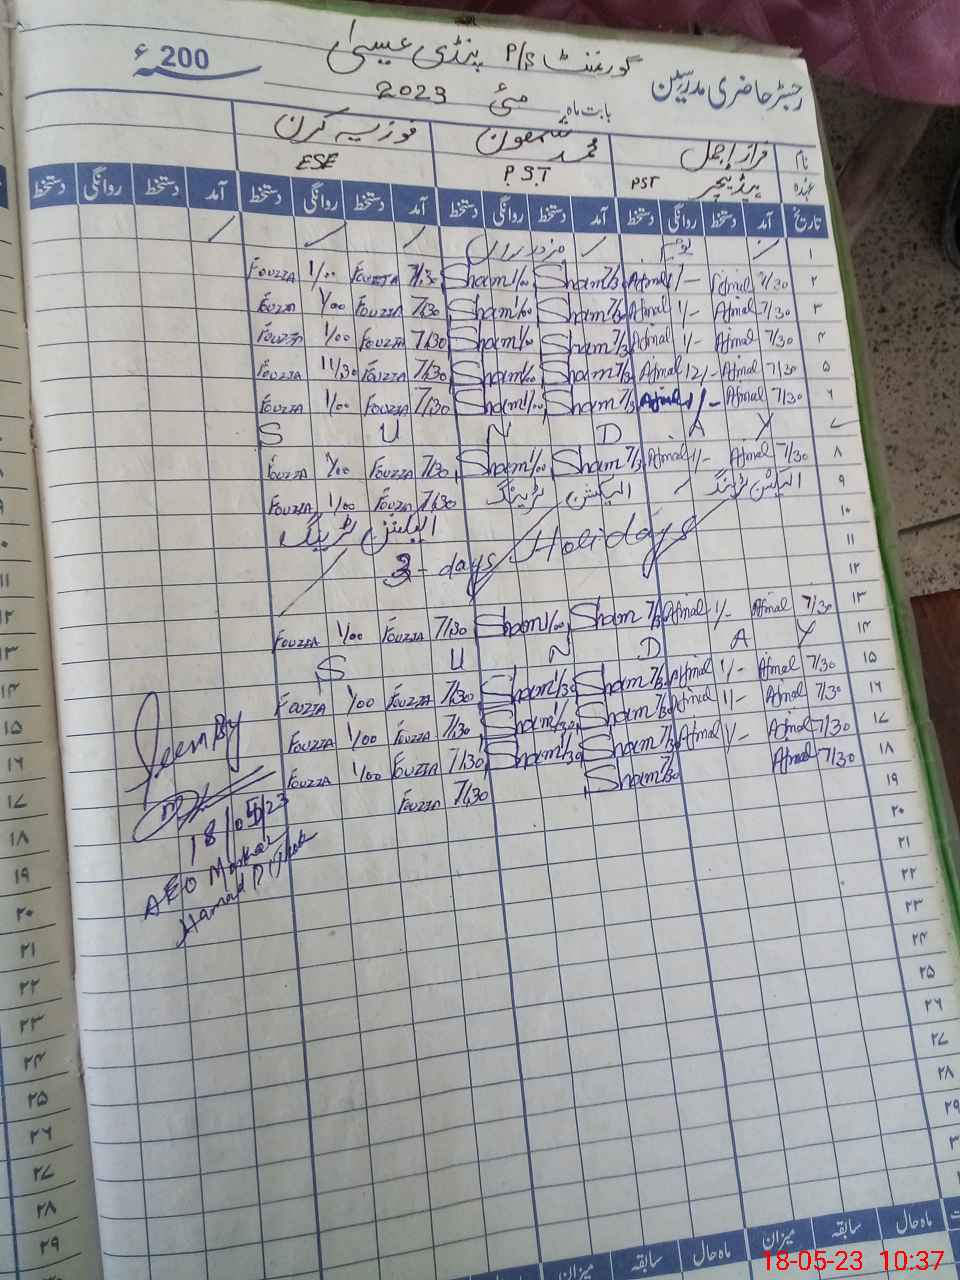 رجسٹر حاضری مدرسین گورنمنٹ P/S پنڈی عیسیٰ 200ء
بابت ماہ مئی 2023
نام فراز اجمل محمد شمعون فوزیہ کرن
عہدہ ہیڈ ٹیچر PST P.S.T ESE
تاریخ آمد دستخط روانگی دستخط آمد دستخط روانگی دستخط آمد دستخط روانگی دستخط آمد دستخط روانگی دستخط
۱ یوم مزدوراں
۲ 7/30 Ajmal 1/- Ajmal 7/3 Sham 1/00 Sham 7/30 Fouzia 1/00 Fouzia
۳ 7/30 Ajmal 1/- Ajmal 7/3 Sham 1/00 Sham 7/30 Fouzia 1/00 Fouzia
۴ 7/30 Ajmal 1/- Ajmal 7/3 Sham 1/00 Sham 7/30 Fouzia 1/00 Fouzia
۵ 7/30 Ajmal 12/- Ajmal 7/3 Sham 1/00 Sham 7/30 Fouzia 11/30 Fouzia
۶ 7/30 Ajmal 1/- Ajmal 7/3 Sham 1/00 Sham 7/30 Fouzia 1/00 Fouzia
۷ S U N D A Y
۸ 7/30 Ajmal 1/- Ajmal 7/3 Sham 1/00 Sham 7/30 Fouzia 1/00 Fouzia
۹ الیکشن ٹریننگ الیکشن ٹریننگ 7/30 Fouzia 1/00 Fouzia
۱۰ الیکشن ٹریننگ
۱۱ 3-days Holidays
۱۲
۱۳ 7/30 Ajmal 1/- Ajmal 7/3 Sham 1/00 Sham 7/30 Fouzia 1/00 Fouzia
۱۴ S U N D A Y
۱۵ 7/30 Ajmal 1/- Ajmal 7/30 Sham 1/30 Sham 7/30 Fouzia 1/00 Fouzia
۱۶ 7/30 Ajmal 1/- Ajmal 7/30 Sham 1/30 Sham 7/30 Fouzia 1/00 Fouzia
۱۷ 7/30 Ajmal 1/- Ajmal 7/30 Sham 1/30 Sham 7/30 Fouzia 1/00 Fouzia
۱۸ 7/30 Ajmal 7/30 Sham 7/30 Fouzia
۱۹
Seen By
18/05/23
AEO Markaz
۲۰
۲۱
۲۲
۲۳
۲۴
۲۵
۲۶
۲۷
۲۸
۲۹
ماہ حال سابقہ میزان ماہ حال سابقہ میزان
18-05-23 10:37